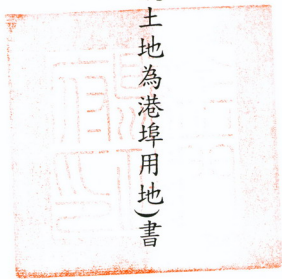 土地為港埠用地）書